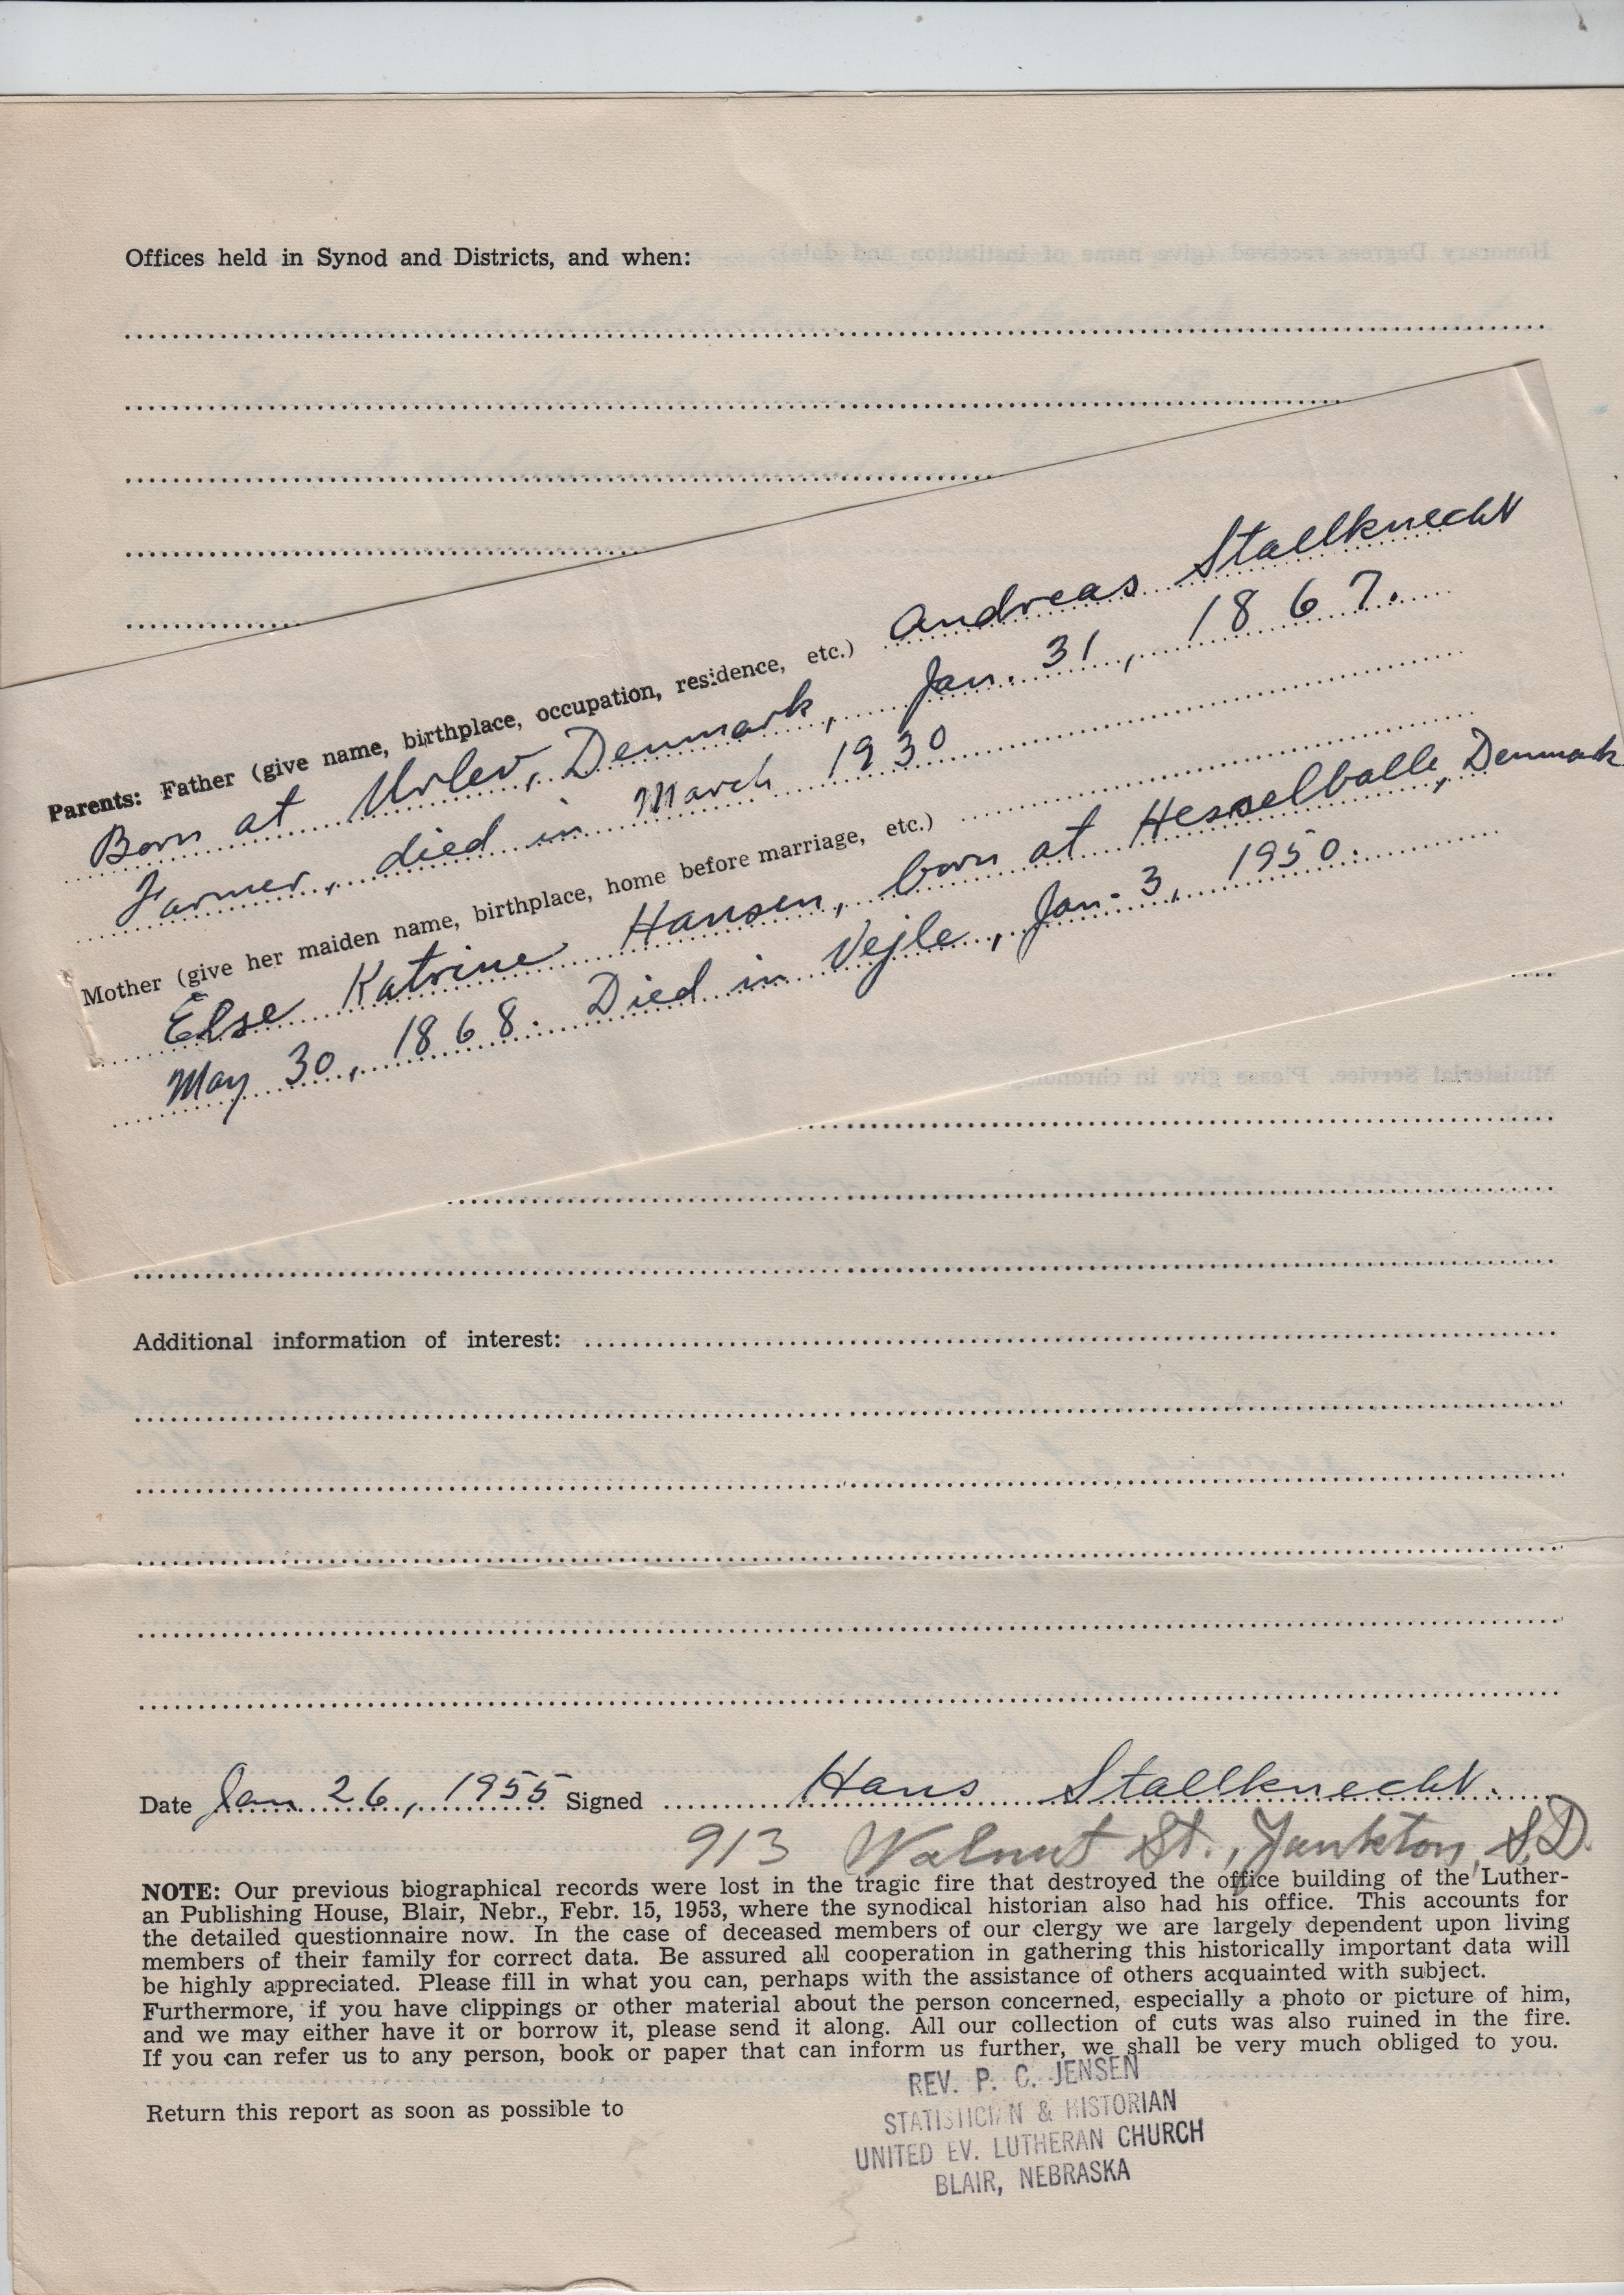 Offices held in Synod and Districts, and when:
Parents: Father (give name, birthplace, occupation, residence, etc.) Andreas Stallknecht
Born at Urlev, Denmark, Jan. 31, 1867.
Farmer, died in March 1930
Mother (give her maiden name, birthplace, home before marriage, etc.)
Else Katrine Hansen, born at Hesselballe, Denmark
May 30, 1868. Died in Vejle, Jan. 3, 1950.
Additional information of interest:
Date Jan 26, 1955 Signed Hans Stallknecht.
913 Walnut St., Yankton, S.D.
NOTE: Our previous biographical records were lost in the tragic fire that destroyed the office building of the Luther-
an Publishing House, Blair, Nebr., Febr. 15, 1953, where the synodical historian also had his office. This accounts for
the detailed questionnaire now. In the case of deceased members of our clergy we are largely dependent upon living
members of their family for correct data. Be assured all cooperation in gathering this historically important data will
be highly appreciated. Please fill in what you can, perhaps with the assistance of others acquainted with subject.
Furthermore, if you have clippings or other material about the person concerned, especially a photo or picture of him,
and we may either have it or borrow it, please send it along. All our collection of cuts was also ruined in the fire.
If you can refer us to any person, book or paper that can inform us further, we shall be very much obliged to you.
REV. P. C. JENSEN
Return this report as soon as possible to
STATISTICIAN & HISTORIAN
UNITED EV. LUTHERAN CHURCH
BLAIR, NEBRASKA